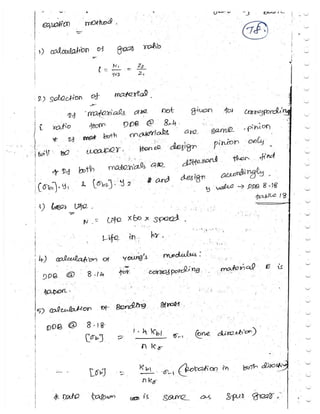 78.
equation method.
1) calculation of gear ratio
i = N1/N2 = Z2/Z1
2) selection of material.
If materials are not given for corresponding
i ratio from DDB @ 8.4.
* If both materials are same. pinion
will be weaker. Hence design pinion only.
* If both materials are different then find
[σb1].y1 & [σb2].y2 and design accordingly.
y value → DDB 8.18
table 18
3) Gear life.
N = life x60 x speed.
Life in hr.
4) calculation of young's modulus:
DDB @ 8.14 for corresponding material E is
taken.
5) calculation of Bending stress
DDB @ 8.18
[σb] = 1.4 Kbl / n Kσ σ-1 (one direction)
[σb] = Kbl / n Kσ σ-1 (Rotation in both direction)
* ratio taken is same as spur gear.